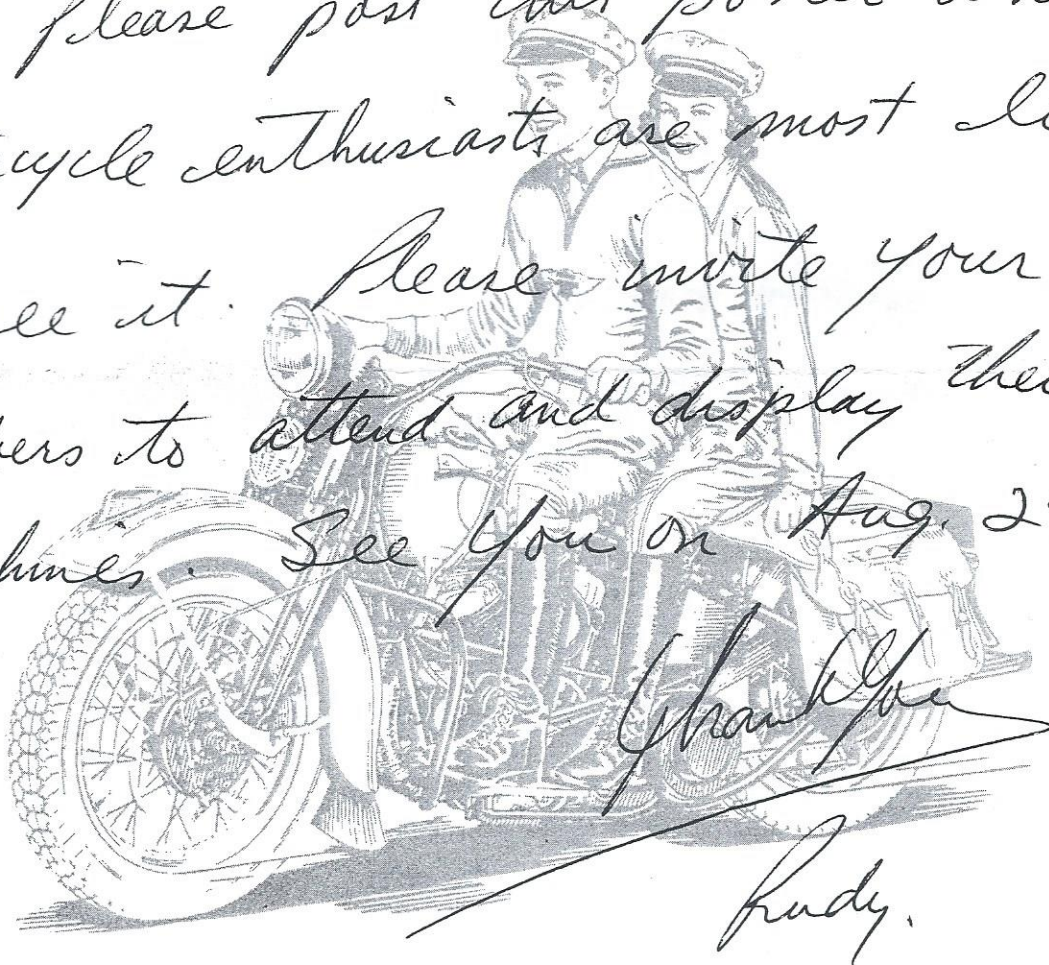 Please post this poster
cycle enthusiasts are most
ee it. Please invite your
ers to attend and display
hines. See you on Aug. 2
Thank You
Rudy.